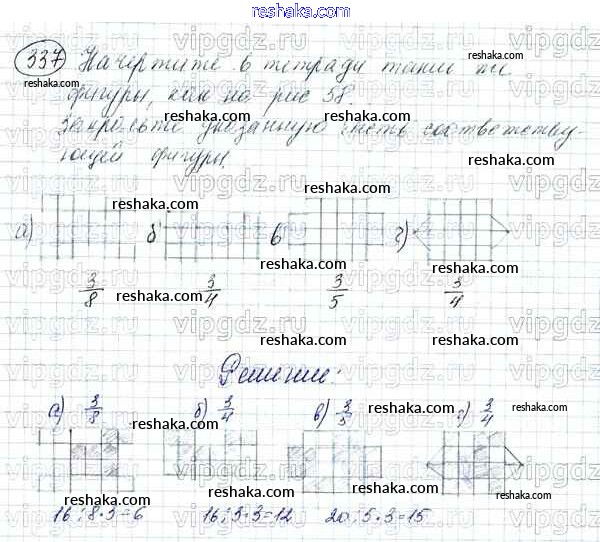 reshaka.com
337 Начертите в тетради такие же
фигуры, как на рис 58.
Закрасьте указанную часть соответству-
ющей фигуры
а) б в г)
3/8 3/4 3/5 3/4
Решение:
а) 3/8 б) 3/4 в) 3/5 г) 3/4
16:8·3=6 16:3·3=12 20:5·3=15